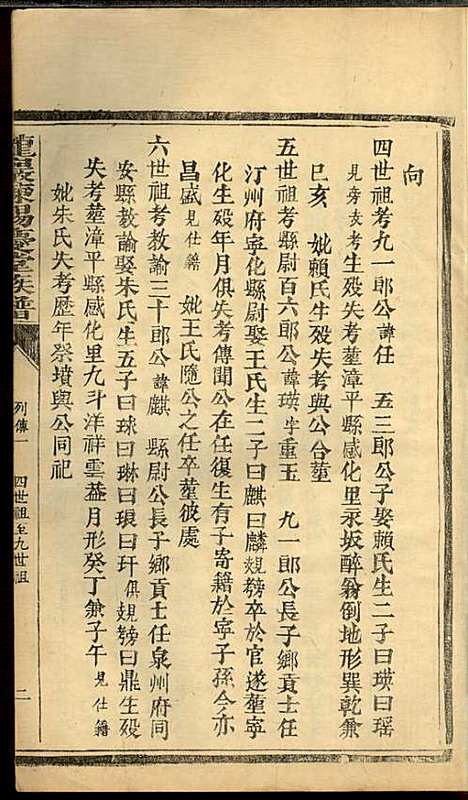 向
四世祖考九一郎公諱任　五三郎公子娶賴氏生二子曰瑛曰瑶
見旁支考生殁失考塟漳平縣感化里永坂醉翁倒地形巽乾兼
巳亥　妣賴氏生殁失考與公合塟
五世祖考縣尉百六郎公諱瑛字重玉　九一郎公長子鄉貢士任
汀州府寧化縣尉娶王氏生二子曰麒曰麟見旁卒於官遂塟寧
化生殁年月俱失考傳聞公在任復生有子寄籍於寧子孫今亦
昌盛見仕籍　妣王氏隨公之任卒塟彼處
六世祖考教諭三十郎公諱麒　縣尉公長子鄉貢士任泉州府同
安縣教諭娶朱氏生五子曰球曰琳曰琅曰玕俱見旁曰鼎生殁
失考塟漳平縣感化里九斗洋祥雲葢月形癸丁兼子午見仕籍
妣朱氏失考歷年祭墳與公同祀
列傳一　四世祖至九世祖　二